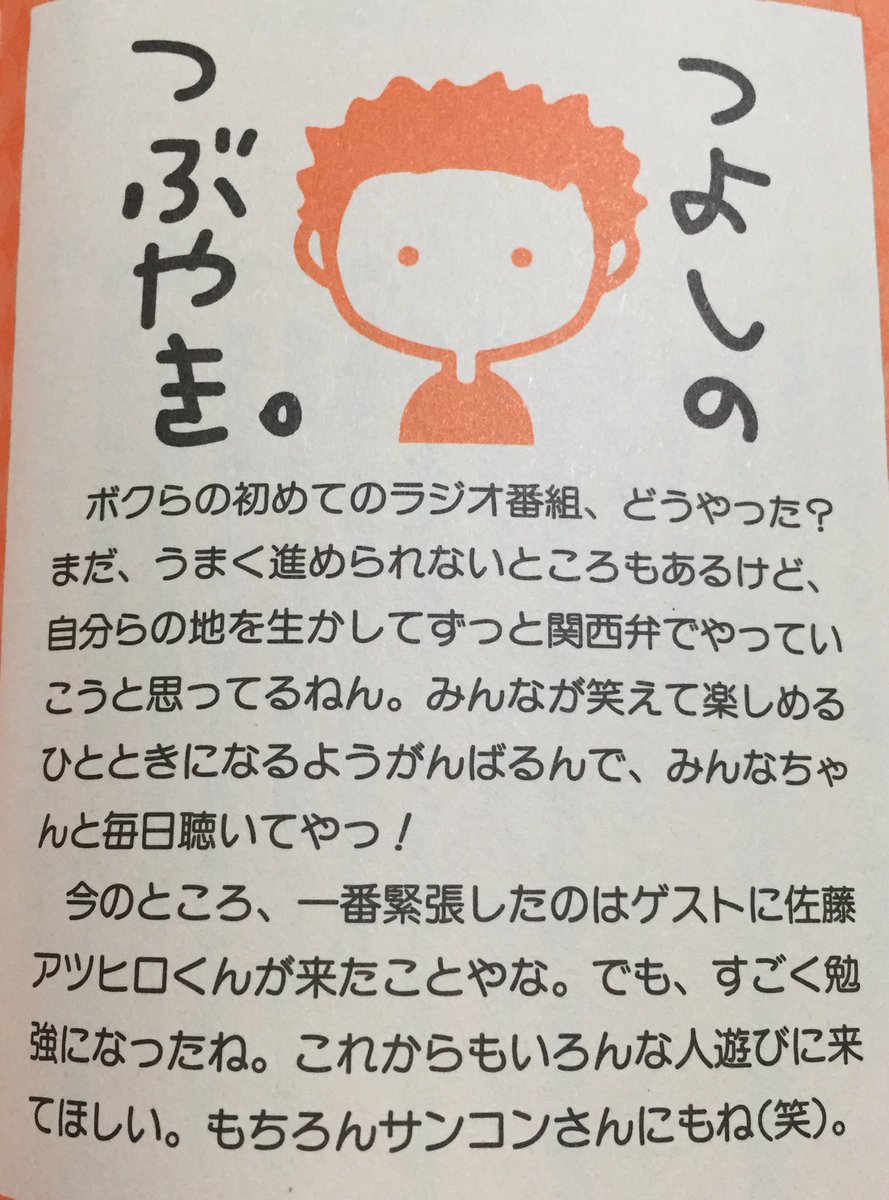 つよしの
つぶやき。
ボクらの初めてのラジオ番組、どうやった?
まだ、うまく進められないところもあるけど、
自分らの地を生かしてずっと関西弁でやってい
こうと思ってるねん。みんなが笑えて楽しめる
ひとときになるようがんばるんで、みんなちゃ
んと毎日聴いてやっ!
今のところ、一番緊張したのはゲストに佐藤
アツヒロくんが来たことやな。でも、すごく勉
強になったね。これからもいろんな人遊びに来
てほしい。もちろんサンコンさんにもね(笑)。